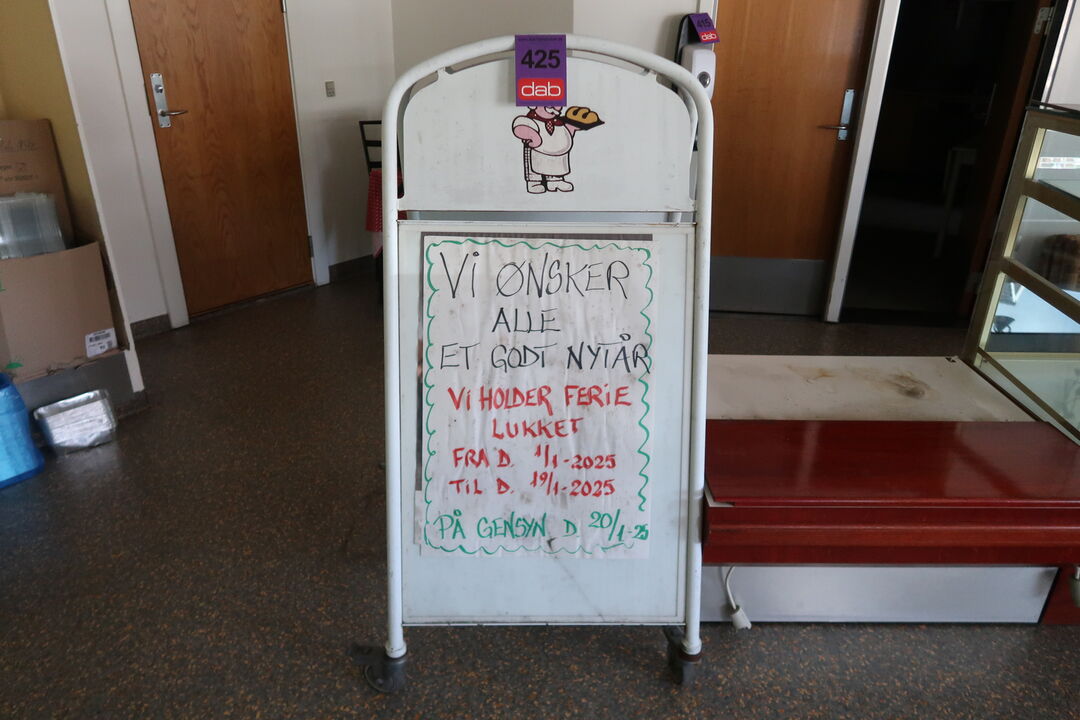 425
dab
415
dab
Vi ØNSKER
ALLE
ET GODT NYTÅR
Vi HOLDER FERiE
LUKKET
FRA D. 1/1-2025
TiL D. 19/1-2025
PÅ GENSYN D 20/1-25